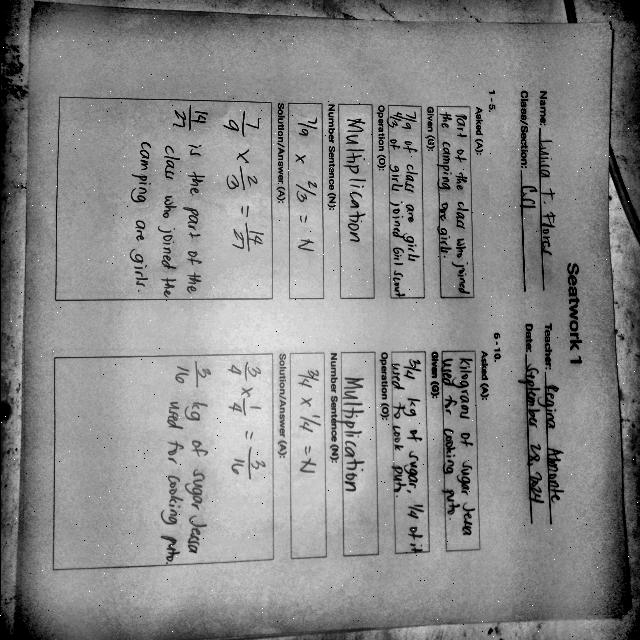 Seatwork 1
Name: Luisa T. Flores Teacher: Regina Abonate
Class/Section: Date: September 23, 2024
1 - 5.
Asked (A):
Part of the class who joined
the camping are girls.
Given (G):
7/9 of class are girls
2/3 of girls joined Girl Scout
Operation (O):
Multiplication
Number Sentence (N):
7/9 x 2/3 = N
Solution/Answer (A):
7/9 x 2/3 = 14/27
14/27 is the part of the
class who joined the
camping are girls.
6 - 10.
Asked (A):
Kilograms of sugar Jessa
used for cooking puto
Given (G):
3/4 kg of sugar, 1/4 of it
used to cook puto
Operation (O):
Multiplication
Number Sentence (N):
3/4 x 1/4 = N
Solution/Answer (A):
3/4 x 1/4 = 3/16
3/16 kg of sugar Jessa
used for cooking puto.